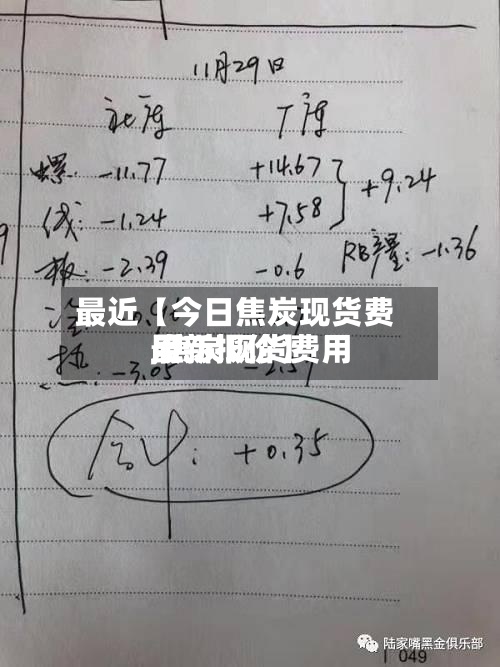 11月29日
社库 厂库
螺: -11.77 +14.67 +9.24
线: -1.24 +7.58
RB产量: -1.36
板: -2.39 -0.6
最近【今日焦炭现货费
费用
-3.05
合计: +0.35
陆家嘴黑金俱乐部
049